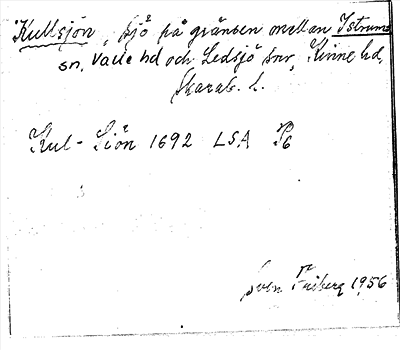 Kullsjön, sjö på gränsen mellan Istrums
sn, Valle hd och Ledsjö snr, Kinne hd,
Skarab. l.
Kul-Siön 1692 LSA P6
Sven Friberg 1956